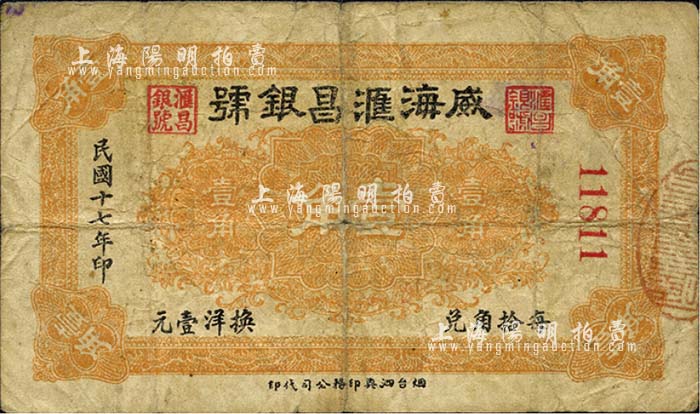 上海陽明拍賣
www.yangmingauction.com
壹角
壹角
威海滙昌銀號
滙昌銀號
滙昌銀號
民國十七年印
11811
壹角
壹角
壹角
上海陽明拍賣
www.yangmingauction.com
每拾角兌
換洋壹元
壹角
上海陽明拍賣
www.yangmingauction.com
烟台泗興印務公司代印